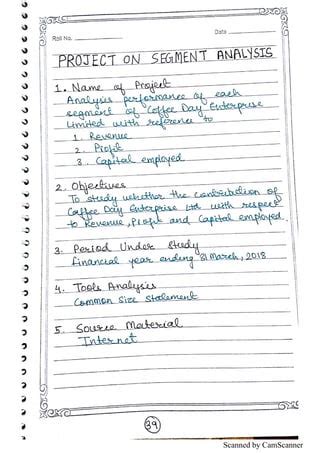 Roll No.
Date
PROJECT ON SEGMENT ANALYSIS
1. Name of Project
Analysis performance of each
segment of Coffee Day Enterprise
Limited with reference to
1. Revenue
2. Profit
3. Capital employed
2. Objectives
To study whether the contribution of
Coffee Day Enterprise Ltd. with respect
to Revenue, Profit and Capital employed.
3. Period Under Study
Financial year ending 31 March, 2018
4. Tools Analysis
Common Size Statement
5. Source Material
Internet
39
Scanned by CamScanner